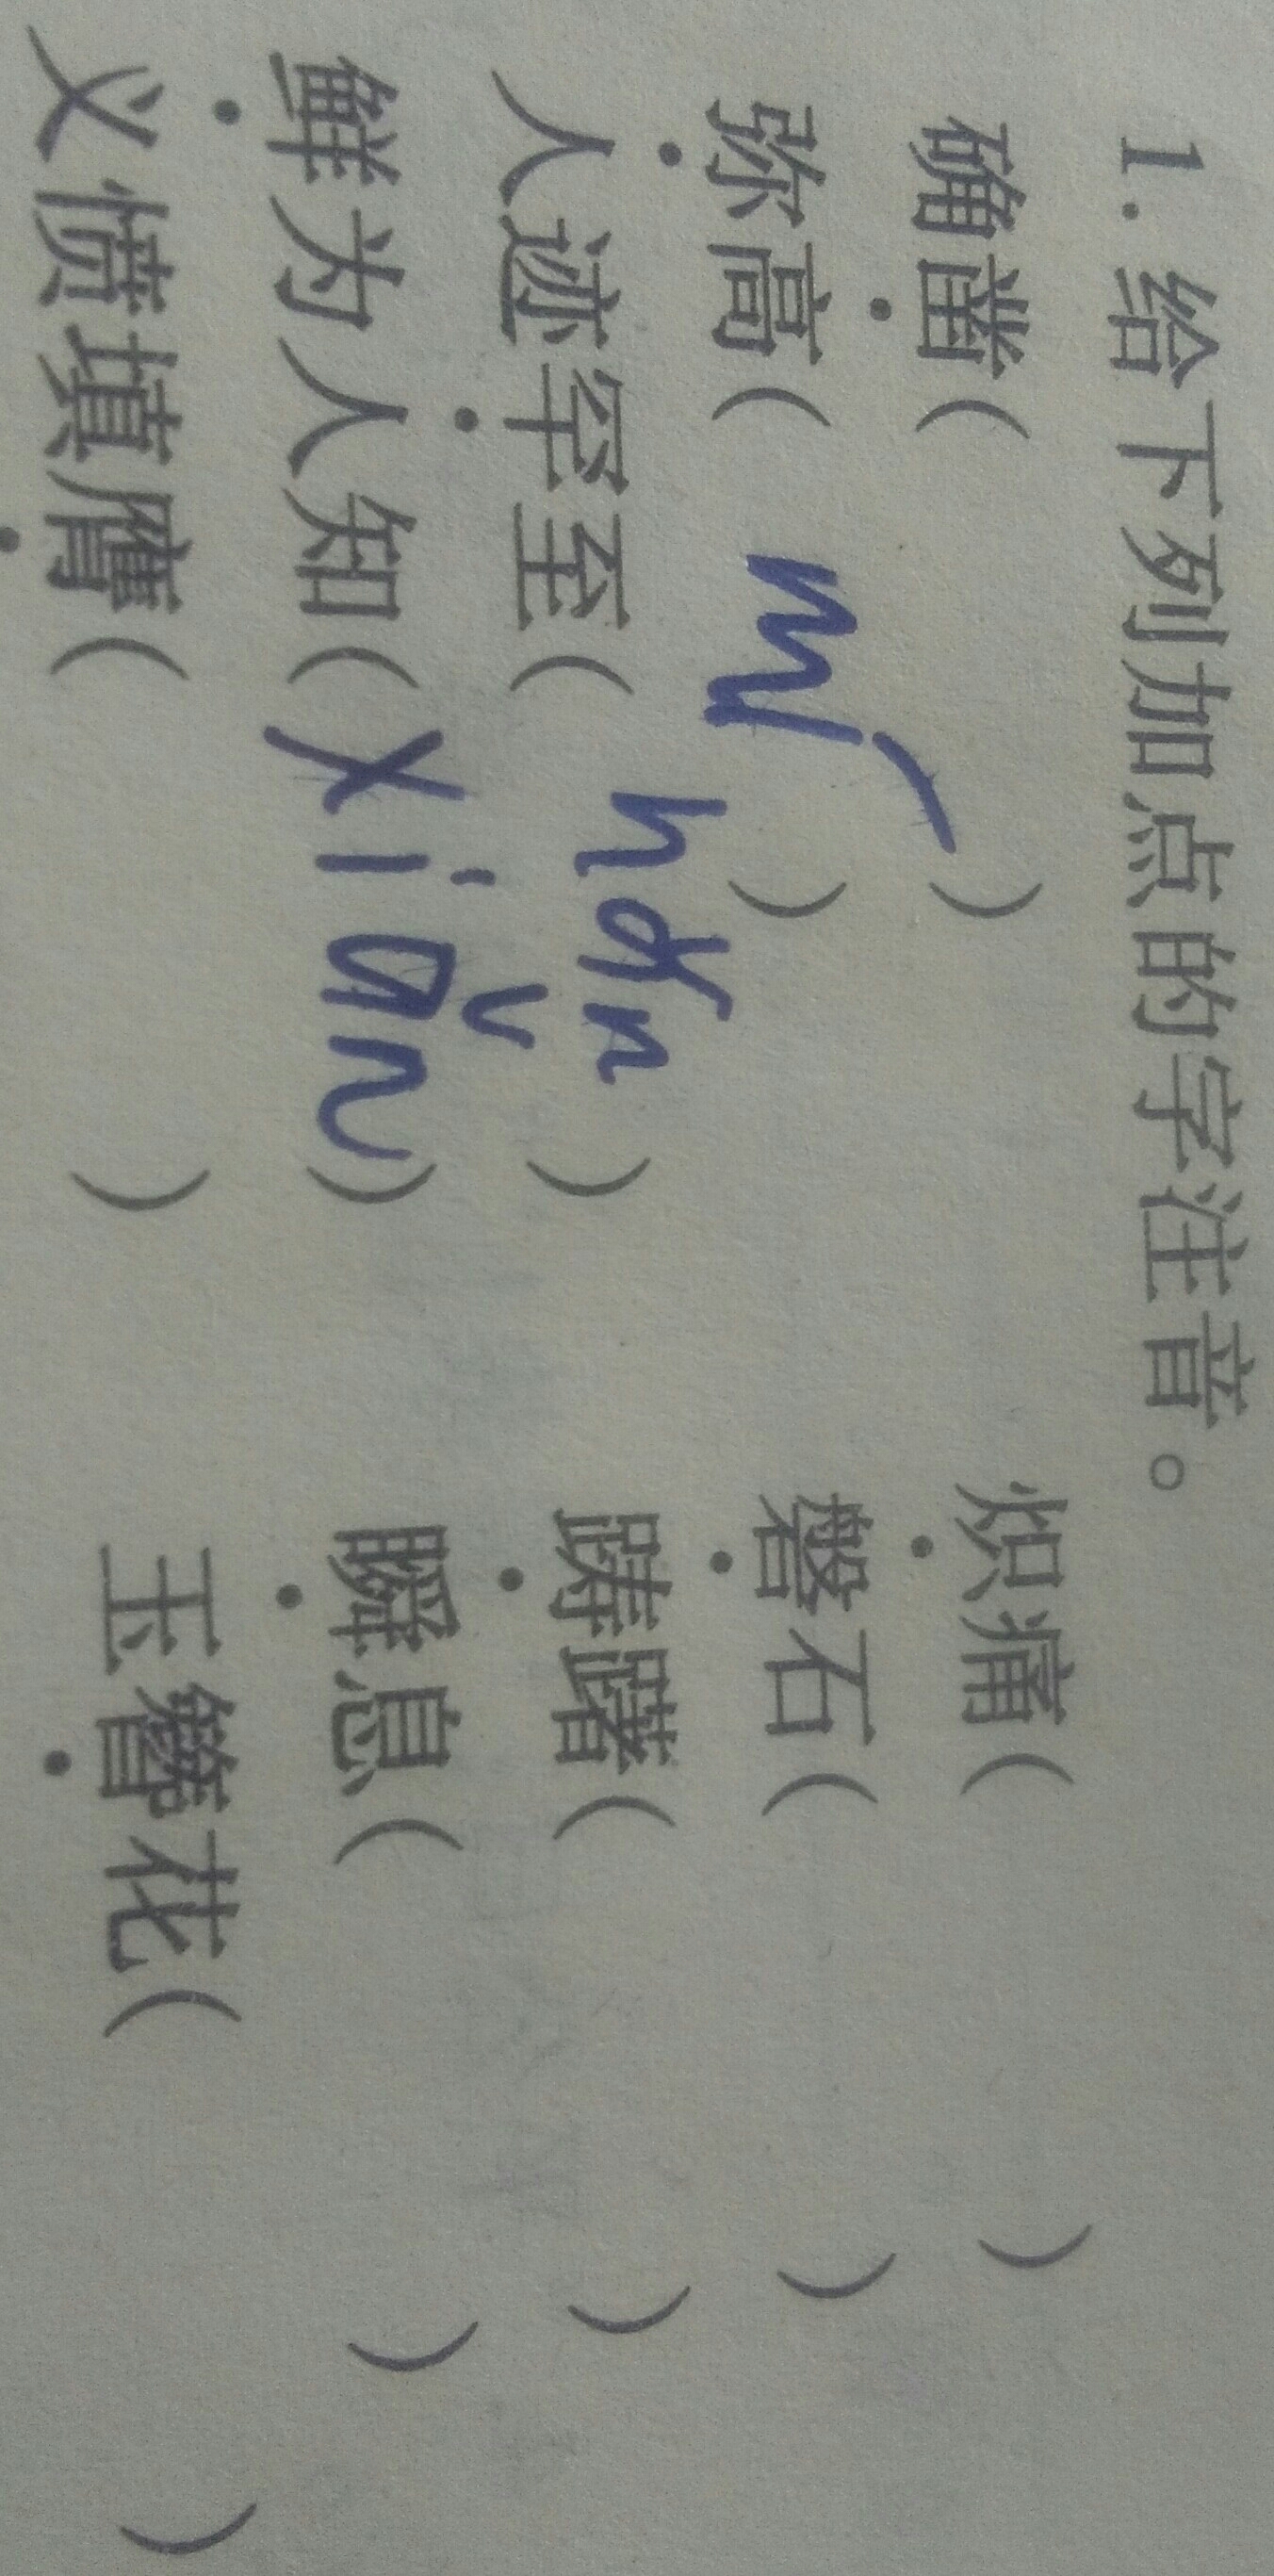 1. 给下列加点的字注音。
确凿( ) 炽痛( )
弥高( mí ) 磐石( )
人迹罕至( hǎn ) 踌躇( )
鲜为人知( xiǎn ) 瞬息( )
义愤填膺( ) 玉簪花( )